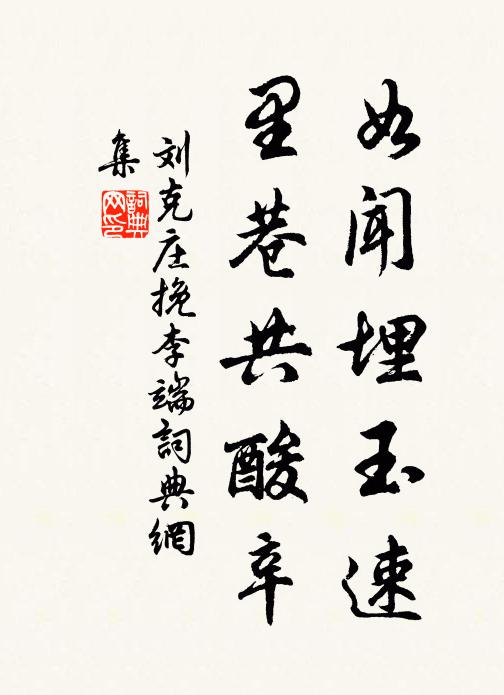 如闻埋玉速
里巷共酸辛
刘克庄挽李端詞典網
集
詞典
网印